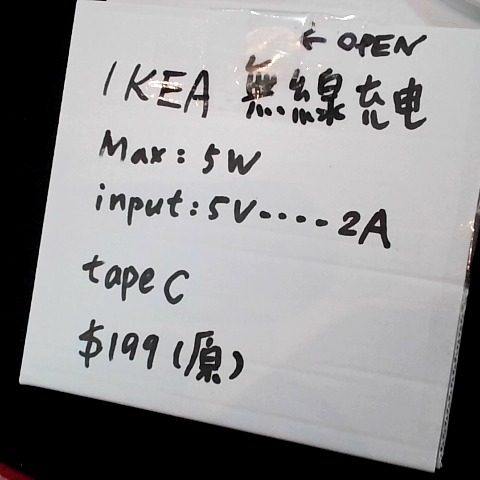 ← OPEN
IKEA 無線充电
Max: 5W
input: 5V....2A
tape C
$199 (原)